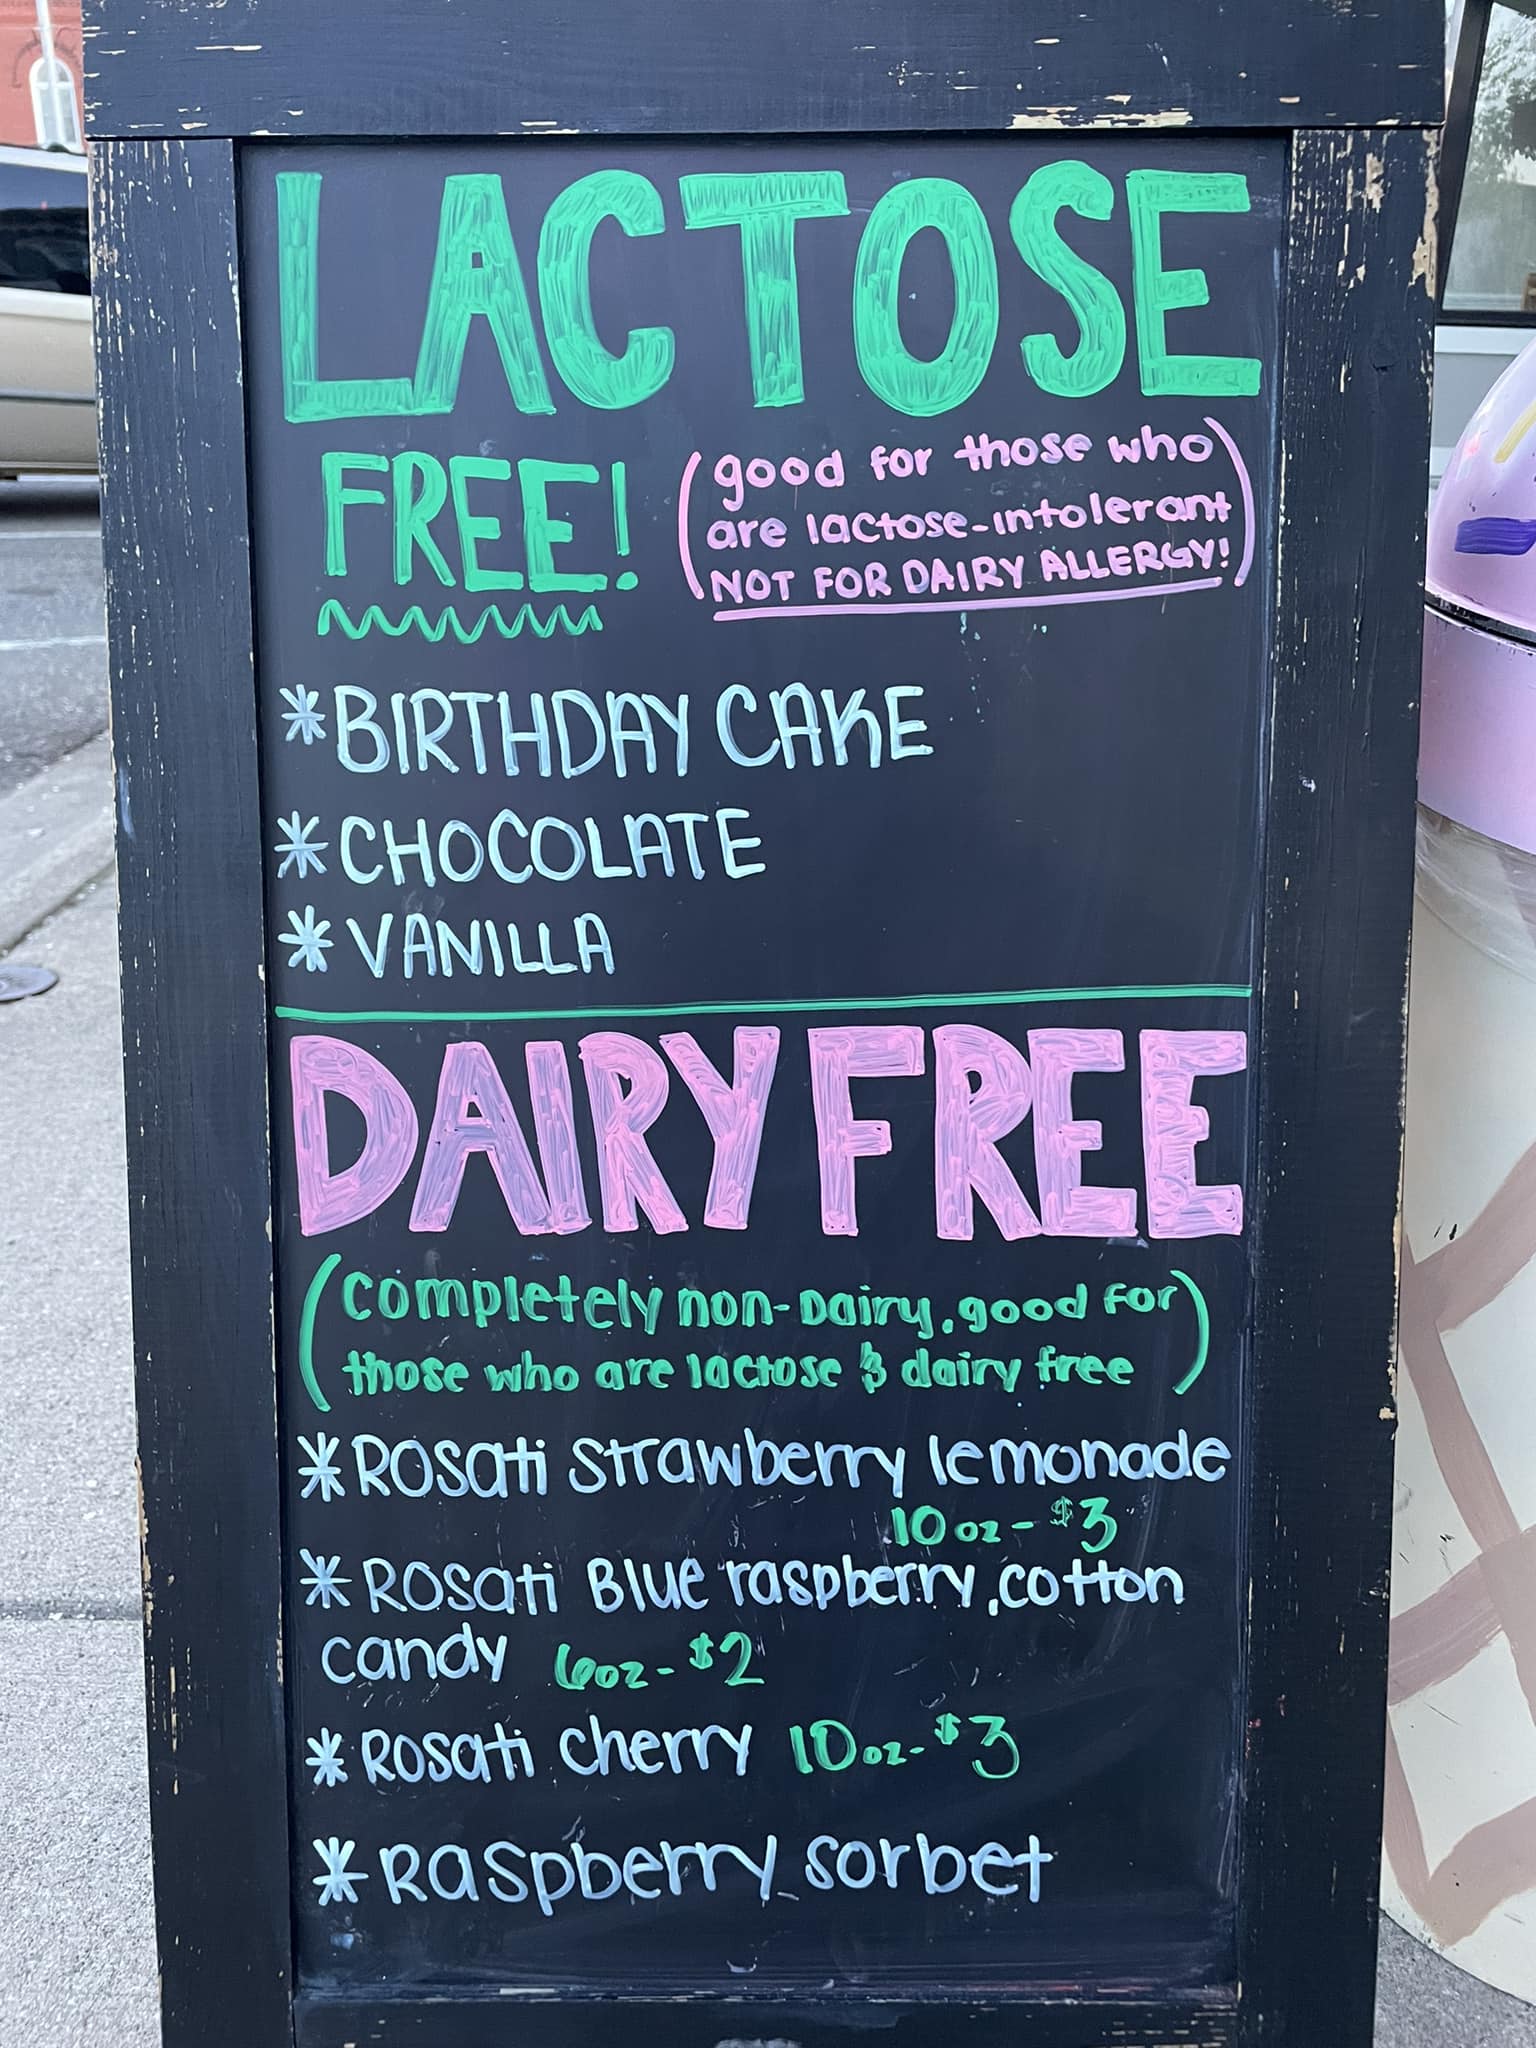 LACTOSE
FREE!
(good for those who
are lactose-intolerant
NOT FOR DAIRY ALLERGY!)
*BIRTHDAY CAKE
*CHOCOLATE
*VANILLA
DAIRY FREE
(completely non-Dairy, good for
those who are lactose & dairy free)
*Rosati strawberry lemonade
10 oz - $3
*Rosati Blue raspberry, cotton
candy 6oz - $2
*Rosati cherry 10 oz - $3
*Raspberry sorbet